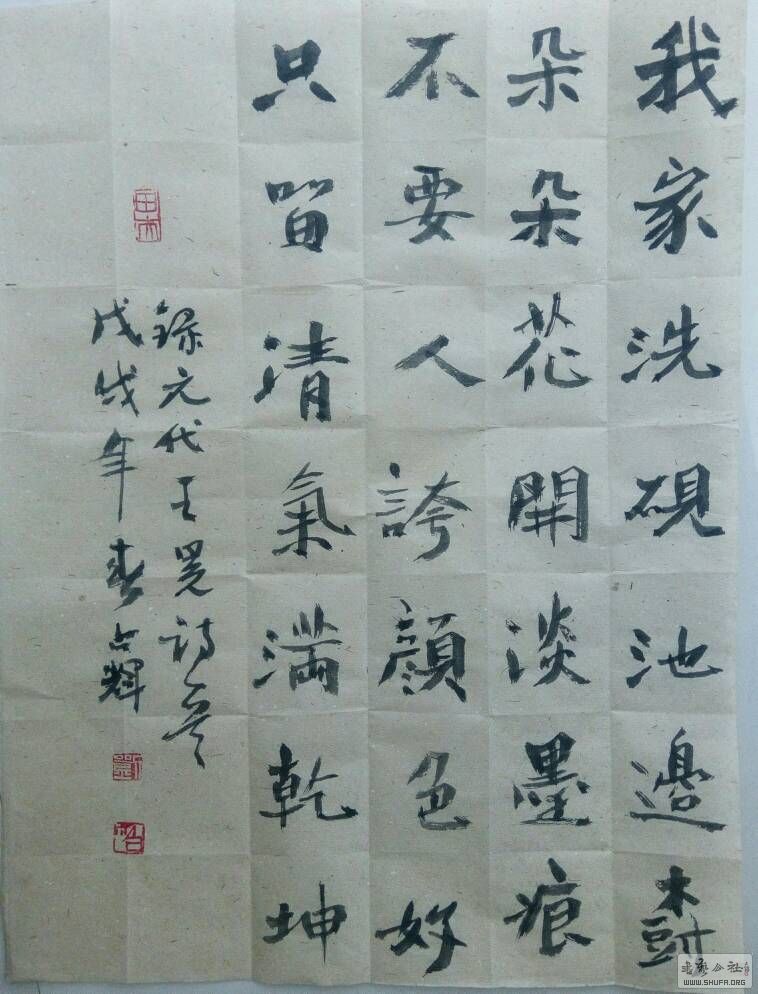 我家洗硯池邊樹
朵朵花開淡墨痕
不要人誇顏色好
只留清氣滿乾坤
錄元代王冕詩一首
戊戌年春占輝
WWW.SHUFA.ORG